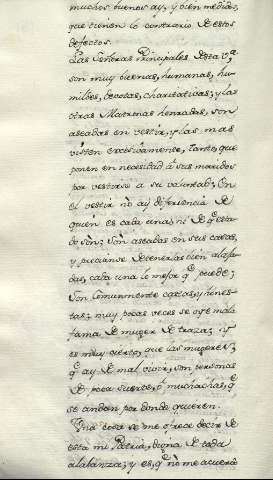 muchos buenos ay, y bien medios,
que tienen lo contrario de estos
defectos.
Las Señoras Principales desta v.ª
son muy buenas, humanas, hu-
mildes, devotas, charitativas; y las
otras Matronas honradas, son
aseadas en vestir, y las mas
visten excesivamente, tanto, que
ponen en necesidad á sus maridos
por vestirse a su voluntad; En
el vestir no ay diferiencia de
quién es cada una, ni de q̃ esta-
do són; Són aseadas en sus casas,
y precianse de tenerlas bien alaja-
das, cada una lo mejor q̃ puede;
Son Comunmente castas, y hones-
tas; muy pocas veces se oye mala
fama de muger de traza; y
es muy cierto, que las mugeres,
q̃ ay de mal vivir, son personas
de poca suerte, ó muchachas, q̃
se andan por donde quieren.
Una cosa se me ofrece decir de
esta mi Patria, digna de toda
alabanza; y es, q̃ nò me acuerdo